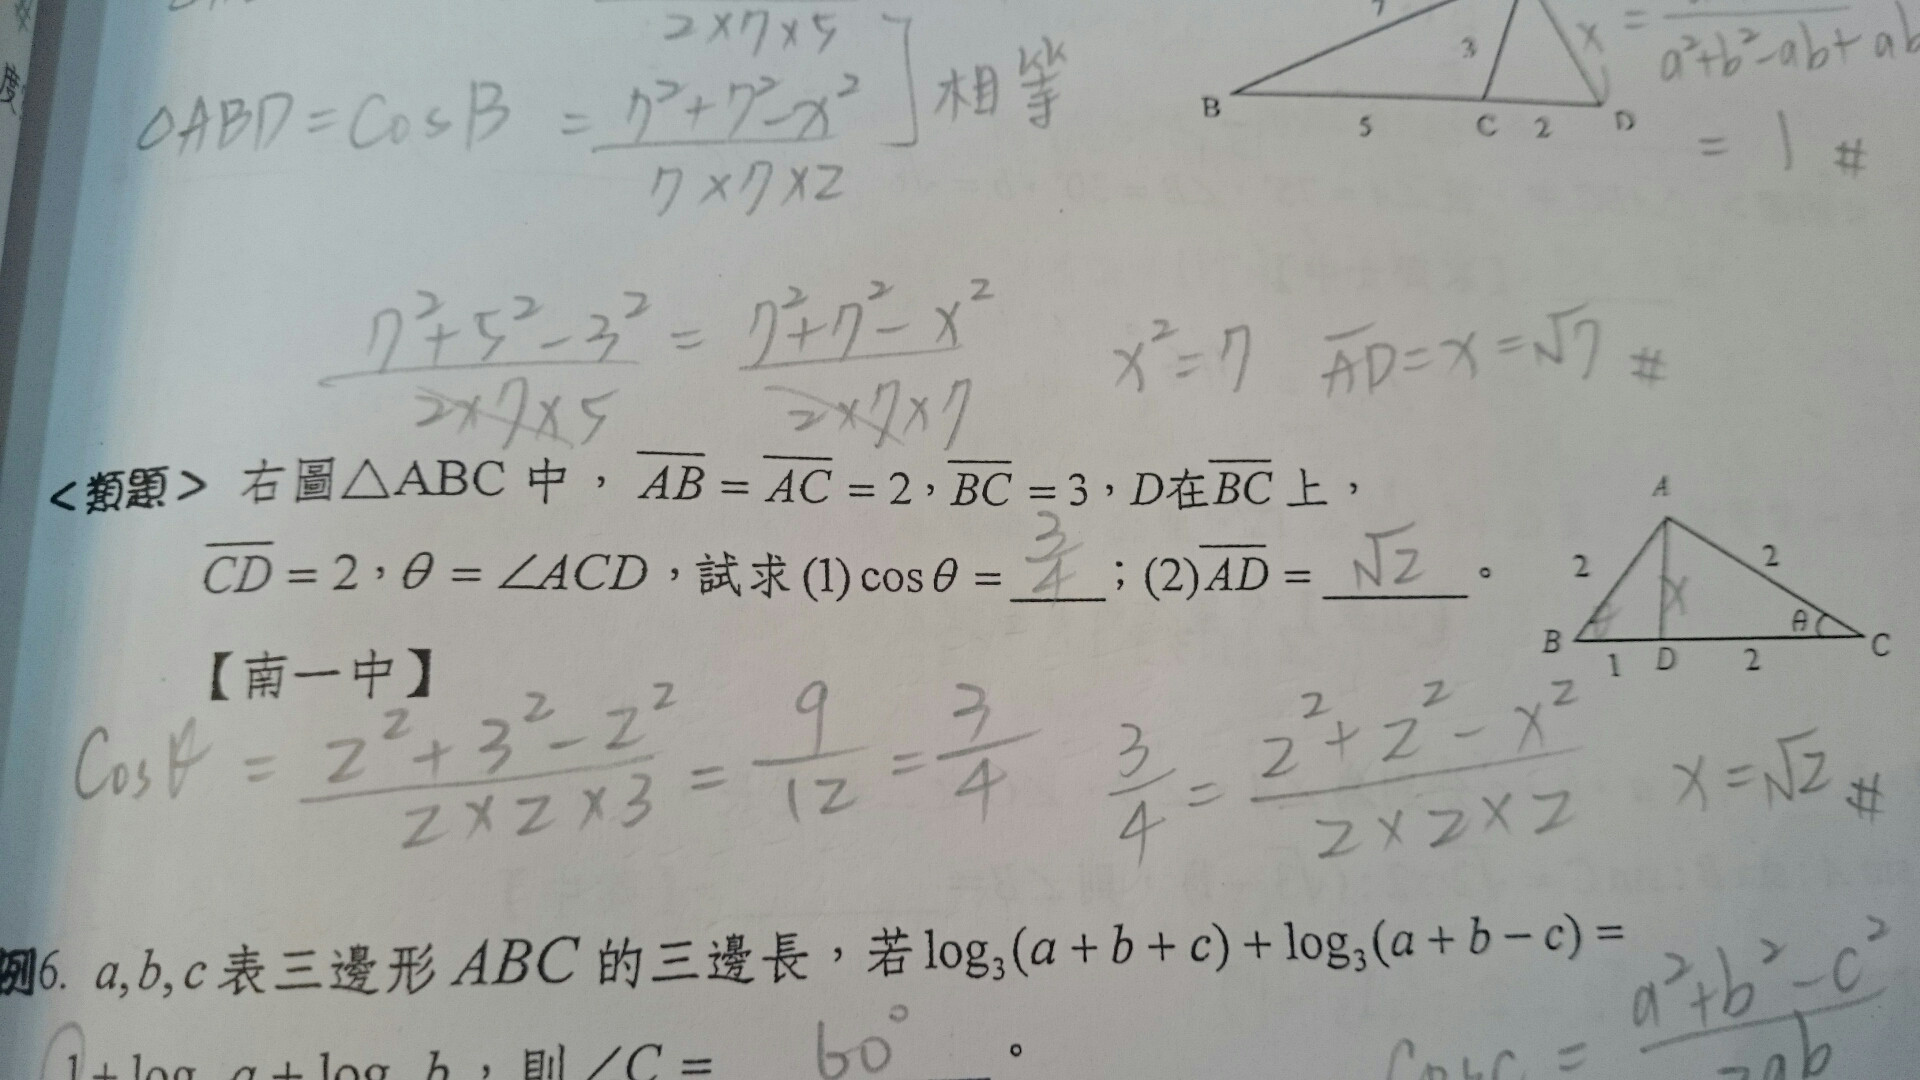 2×7×5
△ABD = Cos B = 7²+7²-x² / 7×7×2 ] 相等
B 5 C 2 D 3 x
= a²+b²-ab+ab
= 1 #
7²+5²-3² / 2×7×5 = 7²+7²-x² / 2×7×7 x²=7 AD=x=√7 #
<類題> 右圖△ABC 中，AB = AC = 2，BC = 3，D在BC 上，
CD = 2，θ = ∠ACD，試求 (1) cos θ = 3/4；(2) AD = √2。
【南一中】
A 2 2 x θ B 1 D 2 θ C
Cosθ = 2²+3²-2² / 2×2×3 = 9/12 = 3/4 3/4 = 2²+2²-x² / 2×2×2 x=√2 #
例6. a,b,c 表三邊形 ABC 的三邊長，若 log₃(a + b + c) + log₃(a + b − c) =
1 + log a + log b，則 ∠C = 60°。
CosC = a²+b²-c² / 2ab